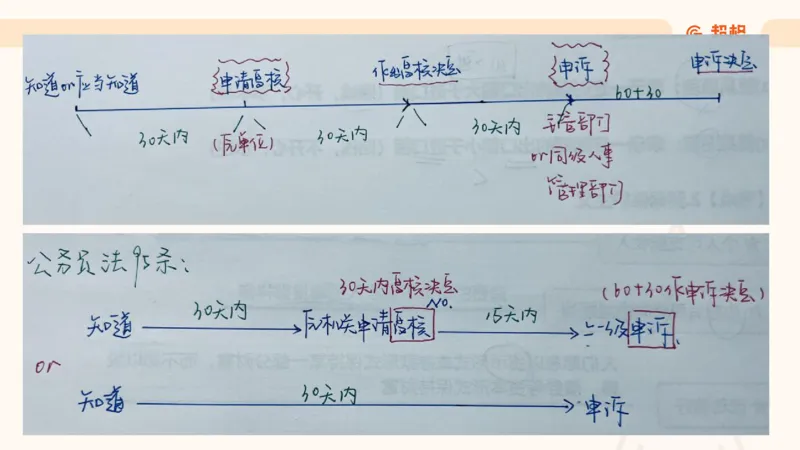 超格
知道or应当知道
申请复核
作出复核决定
申诉
申诉决定
60+30
30天内
(原单位)
30天内
30天内
主管部门
or同级人事
管理部门
公务员法95条:
30天内复核决定
(60+30作申诉决定)
知道
30天内
原机关申请复核
No.
15天内
上一级申诉.
or
知道
30天内
申诉